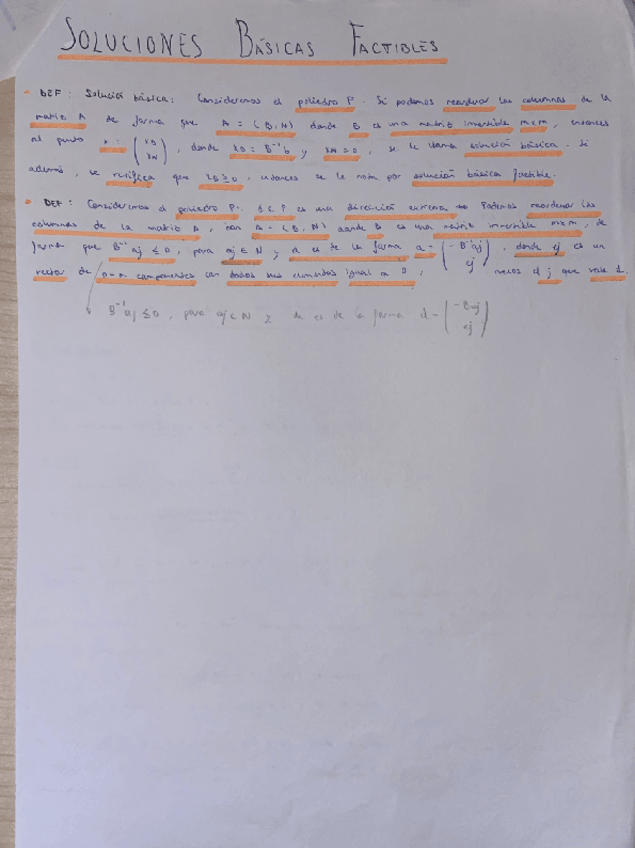 SOLUCIONES BÁSICAS FACTIBLES
- DEF: Solución básica: Consideremos el poliedro P. Si podemos reordenar las columnas de la
matriz A de forma que A = (B, N) donde B es una matriz invertible mxm, entonces
al punto x = (xB xN), donde xB = B⁻¹b y xN = 0, se le llama solución básica. Si
además, se verifica que xB ≥ 0, entonces se le nom por solución básica factible.
DEF: Consideremos el poliedro P. d ∈ P es una dirección extrema ↔ Podemos reordenar las
columnas de la matriz A, con A = (B, N) donde B es una matriz invertible mxm, de
forma que B⁻¹ aj ≤ 0, para aj ∈ N y d es de la forma d = (-B⁻¹aj ej), donde ej es un
vector de n-m componentes con todos sus elementos igual a 0, menos el j que vale 1.
B⁻¹ aj ≤ 0, para aj ∈ N y de es de la forma d = (-B⁻¹aj ej)